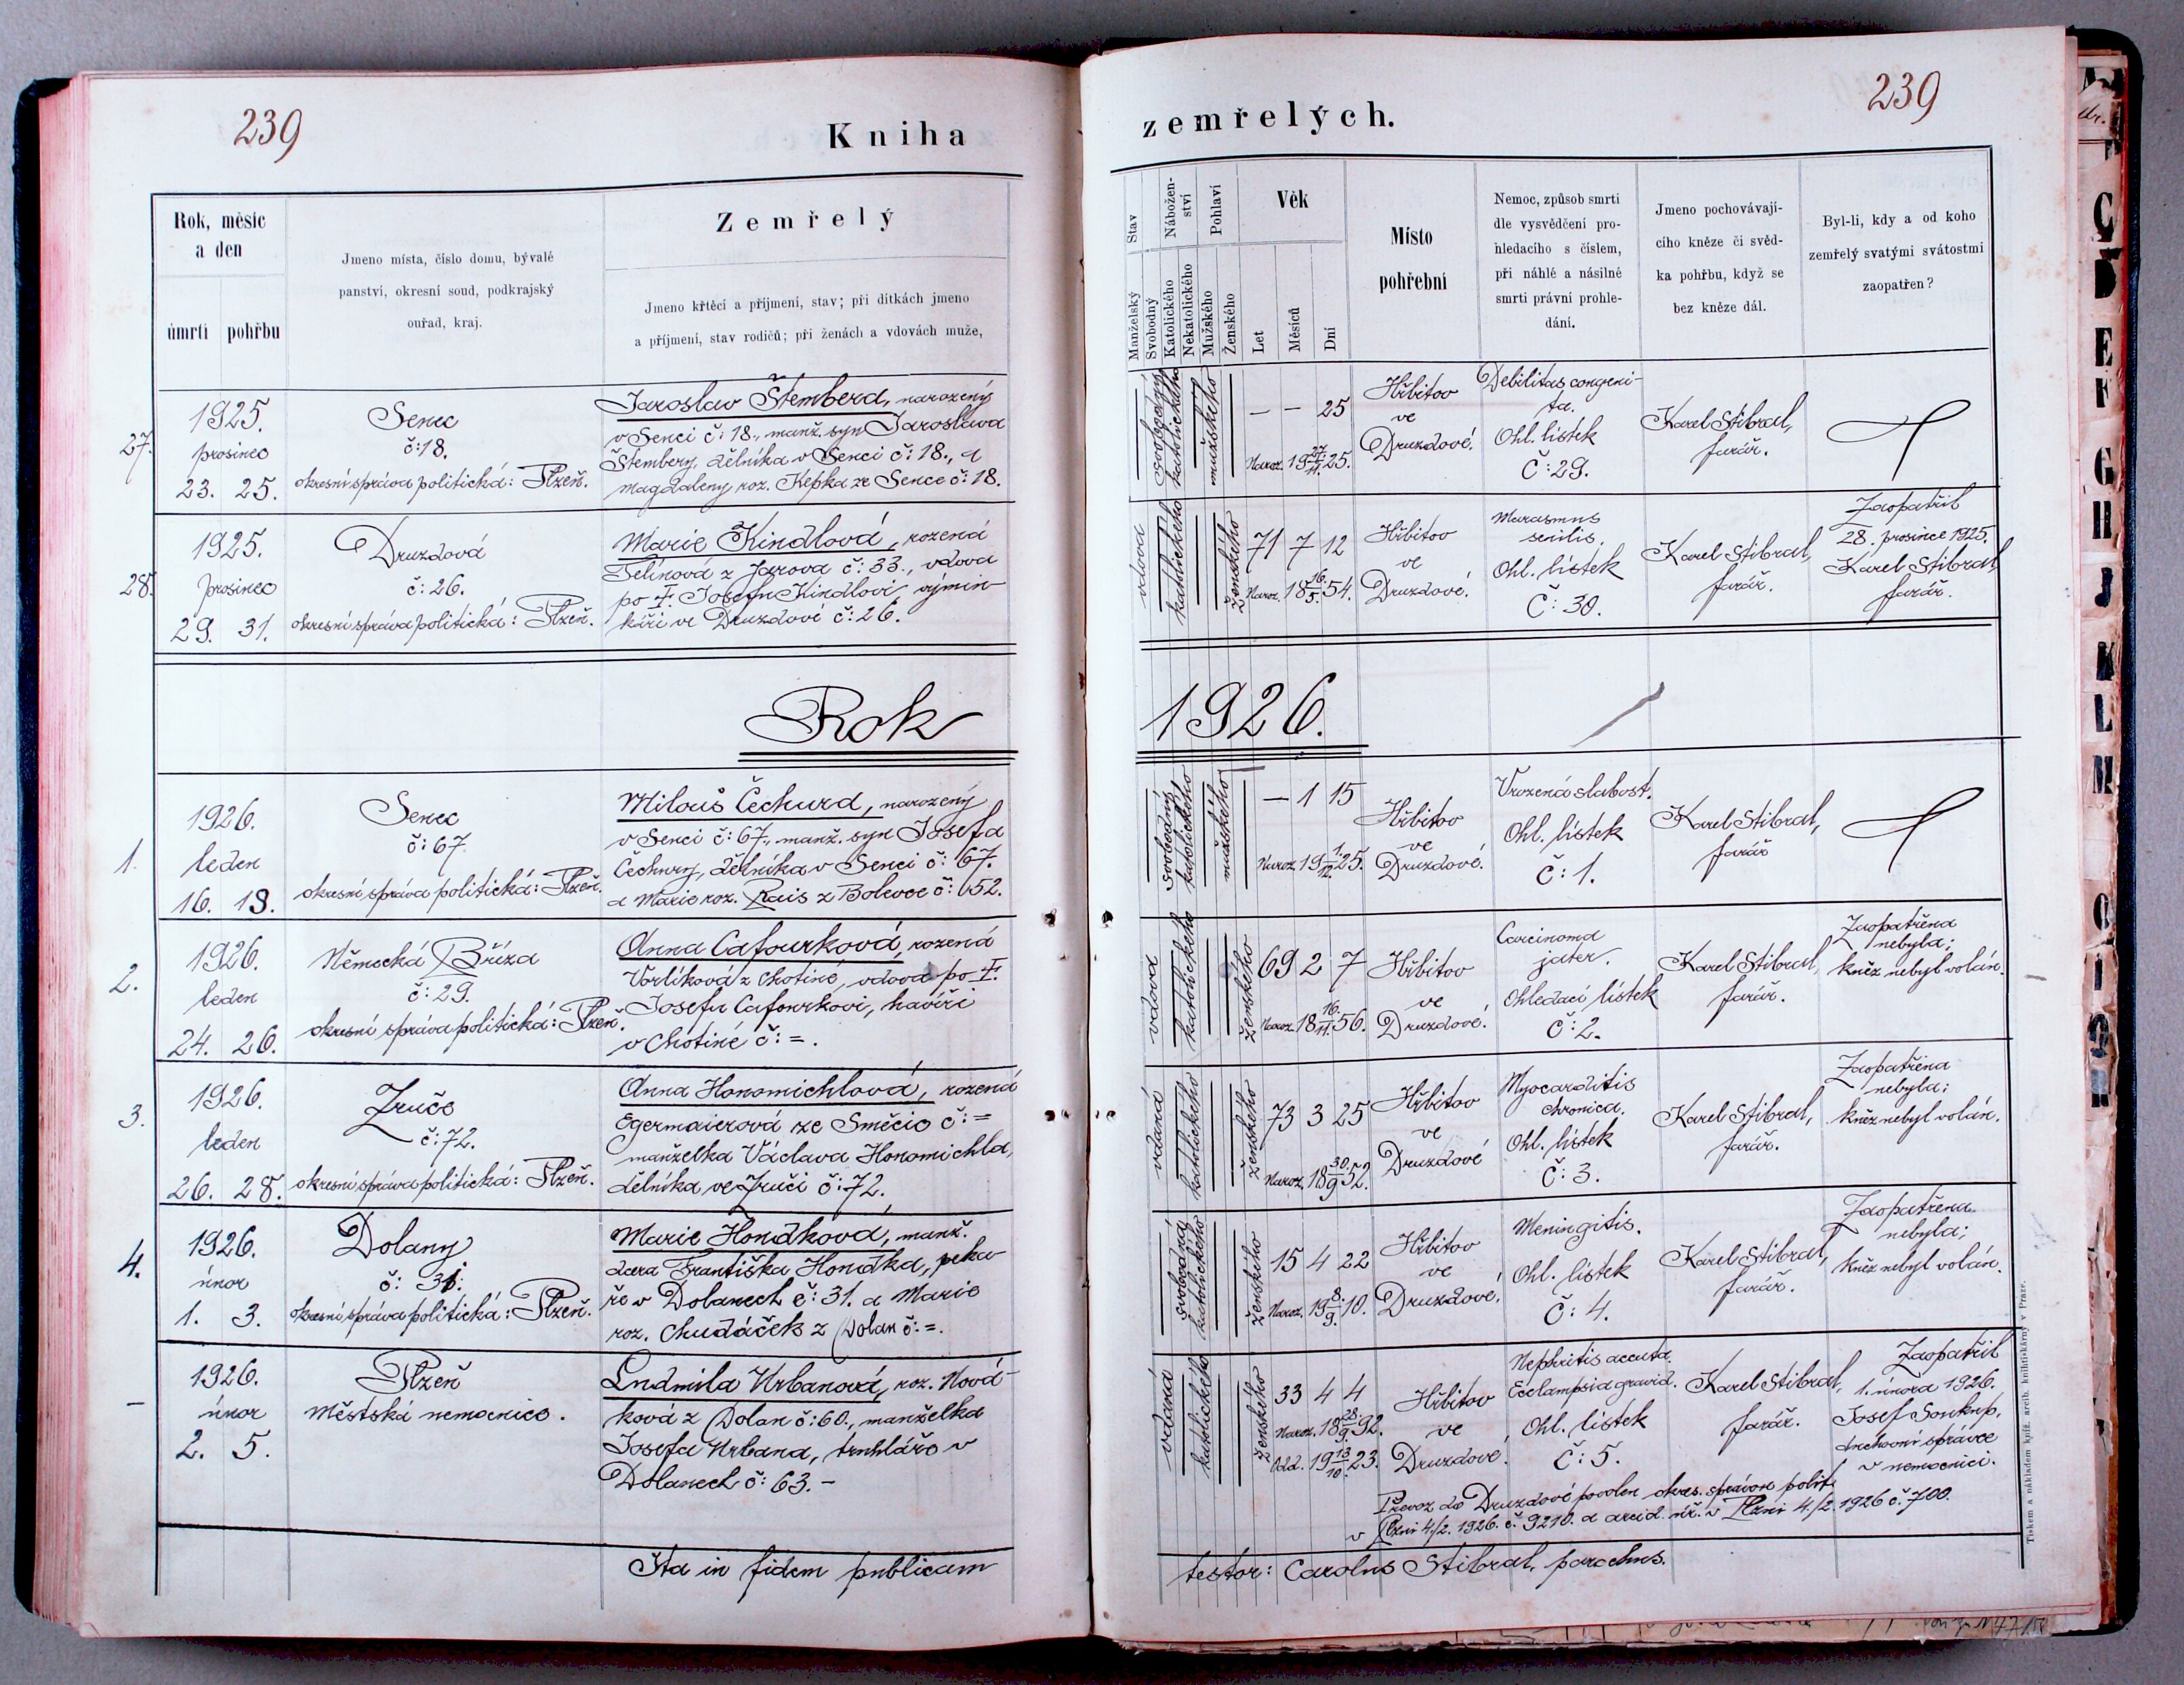 239
Kniha
Rok, měsíc
a den
úmrtí pohřbu
Jmeno místa, číslo domu, bývalé
panství, okresní soud, podkrajský
ouřad, kraj.
Zemřelý
Jmeno křtěcí a příjmení, stav; při dítkách jmeno
a příjmení, stav rodičů; při ženách a vdovách muže,
27.
1925.
prosinec
23. 25.
Senec
č: 18.
okresní správa politická: Plzeň.
Jaroslav Štembera, narozený
v Senci č: 18., manž. syn Jaroslava
Štembery, dělníka v Senci č: 18., a
Magdaleny roz. Kepka ze Sence č: 18.
28.
1925.
prosinec
29. 31.
Druzdová
č: 26.
okresní správa politická: Plzeň.
Marie Kindlová, rozená
Telínová z Jarova č: 33., vdova
po † Josefu Kindlovi výmin-
káři ve Druzdové č: 26.
Rok
1.
1926.
leden
16. 18.
Senec
č: 67
okresní správa politická: Plzeň.
Milouš Čechura, narozený
v Senci č: 67., manž. syn Josefa
Čechury, dělníka v Senci č: 67.
a Marie roz. Rais z Bolevce č: 652.
2.
1926.
leden
24. 26.
Německá Bříza
č: 29.
okresní správa politická: Plzeň.
Anna Cafourková, rozená
Vorlíková z Chotiné, vdova po †
Josefu Cafourkovi, havíři
v Chotiné č: =.
3.
1926.
leden
26. 28.
Zruče
č: 72.
okresní správa politická: Plzeň.
Anna Honomichlová, rozená
Egermaierová ze Směčic č: =
manželka Václava Honomichla,
dělníka ve Zruči č: 72.
4.
1926.
únor
1. 3.
Dolany
č: 31.
okresní správa politická: Plzeň.
Marie Hondková, manž.
dcera Františka Hondka, peka-
ře v Dolanech č: 31. a Marie
roz. Chudáček z Dolan č: =.
–
1926.
únor
2. 5.
Plzeň
Městská nemocnice.
Ludmila Urbanová, roz. Nová-
ková z Dolan č: 60., manželka
Josefa Urbana, truhláře v
Dolanech č: 63. –
Ita in fidem publicam
239
zemřelých.
Stav
Nábožen-
ství
Pohlaví
Věk
Manželský
Svobodný
Katolického
Nekatolického
Mužského
Ženského
Let
Měsíců
Dní
Místo
pohřební
Nemoc, způsob smrti
dle vysvědčení pro-
hledacího s číslem,
při náhlé a násilné
smrti právní prohle-
dání.
Jmeno pochovávají-
cího kněze či svěd-
ka pohřbu, když se
bez kněze dál.
Byl-li, kdy a od koho
zemřelý svatými svátostmi
zaopatřen?
svobodný
katolického
mužského
– – 25
Naroz. 19 27./11. 25.
Hřbitov
ve
Druzdové.
Debilitas congeni-
ta.
Ohl. lístek
Č: 29.
Karel Stibral,
farář.
vdova
katolického
ženského
71 7 12
Naroz. 18 16./5. 54.
Hřbitov
ve
Druzdové.
Marasmus
senilis.
Ohl. lístek
Č: 30.
Karel Stibral,
farář.
Zaopatřil
28. prosince 1925.
Karel Stibral,
farář.
1926.
svobodný
katolického
mužského
– 1 15
Naroz. 19 1./12. 25.
Hřbitov
ve
Druzdové.
Vrozená slabost.
Ohl. lístek
Č: 1.
Karel Stibral,
farář
vdova
katolického
ženského
69 2 7
Naroz. 18 16./11. 56.
Hřbitov
ve
Druzdové.
Carcinoma
jater.
Ohledací lístek
Č: 2.
Karel Stibral,
farář.
Zaopatřena
nebyla;
kněz nebyl volán.
vdaná
katolického
ženského
73 3 25
Naroz. 18 30./9 52.
Hřbitov
ve
Druzdové
Myocarditis
chronica.
Ohl. lístek
Č: 3.
Karel Stibral,
farář.
Zaopatřena
nebyla;
kněz nebyl volán.
svobodná
katolického
ženského
15 4 22
Naroz. 19 8./9. 10.
Hřbitov
ve
Druzdové.
Meningitis.
Ohl. lístek
Č: 4.
Karel Stibral,
farář.
Zaopatřena
nebyla;
kněz nebyl volán.
vdaná
katolického
ženského
33 4 4
Naroz. 18 28./9. 92.
Odd. 19 13/10. 23.
Hřbitov
ve
Druzdové.
Nephritis accuta.
Eclampsia gravid.
Ohl. lístek
Č: 5.
Karel Stibral,
farář.
Zaopatřil
1. února 1926.
Josef Soukup,
duchovní správce
v nemocnici.
Převoz do Druzdové povolen okres. správou polit.
v Plzni 4./2. 1926. č. 9210. a arcid. úř. v Plzni 4./2. 1926 č. 700.
testor: Carolus Stibral, parochus.
Tiskem a nákladem kníž. arcib. knihtiskárny v Praze.